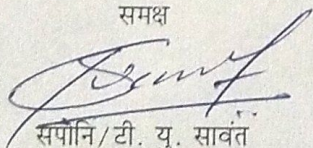 समक्ष
सपोनि/टी. यू. सावंत